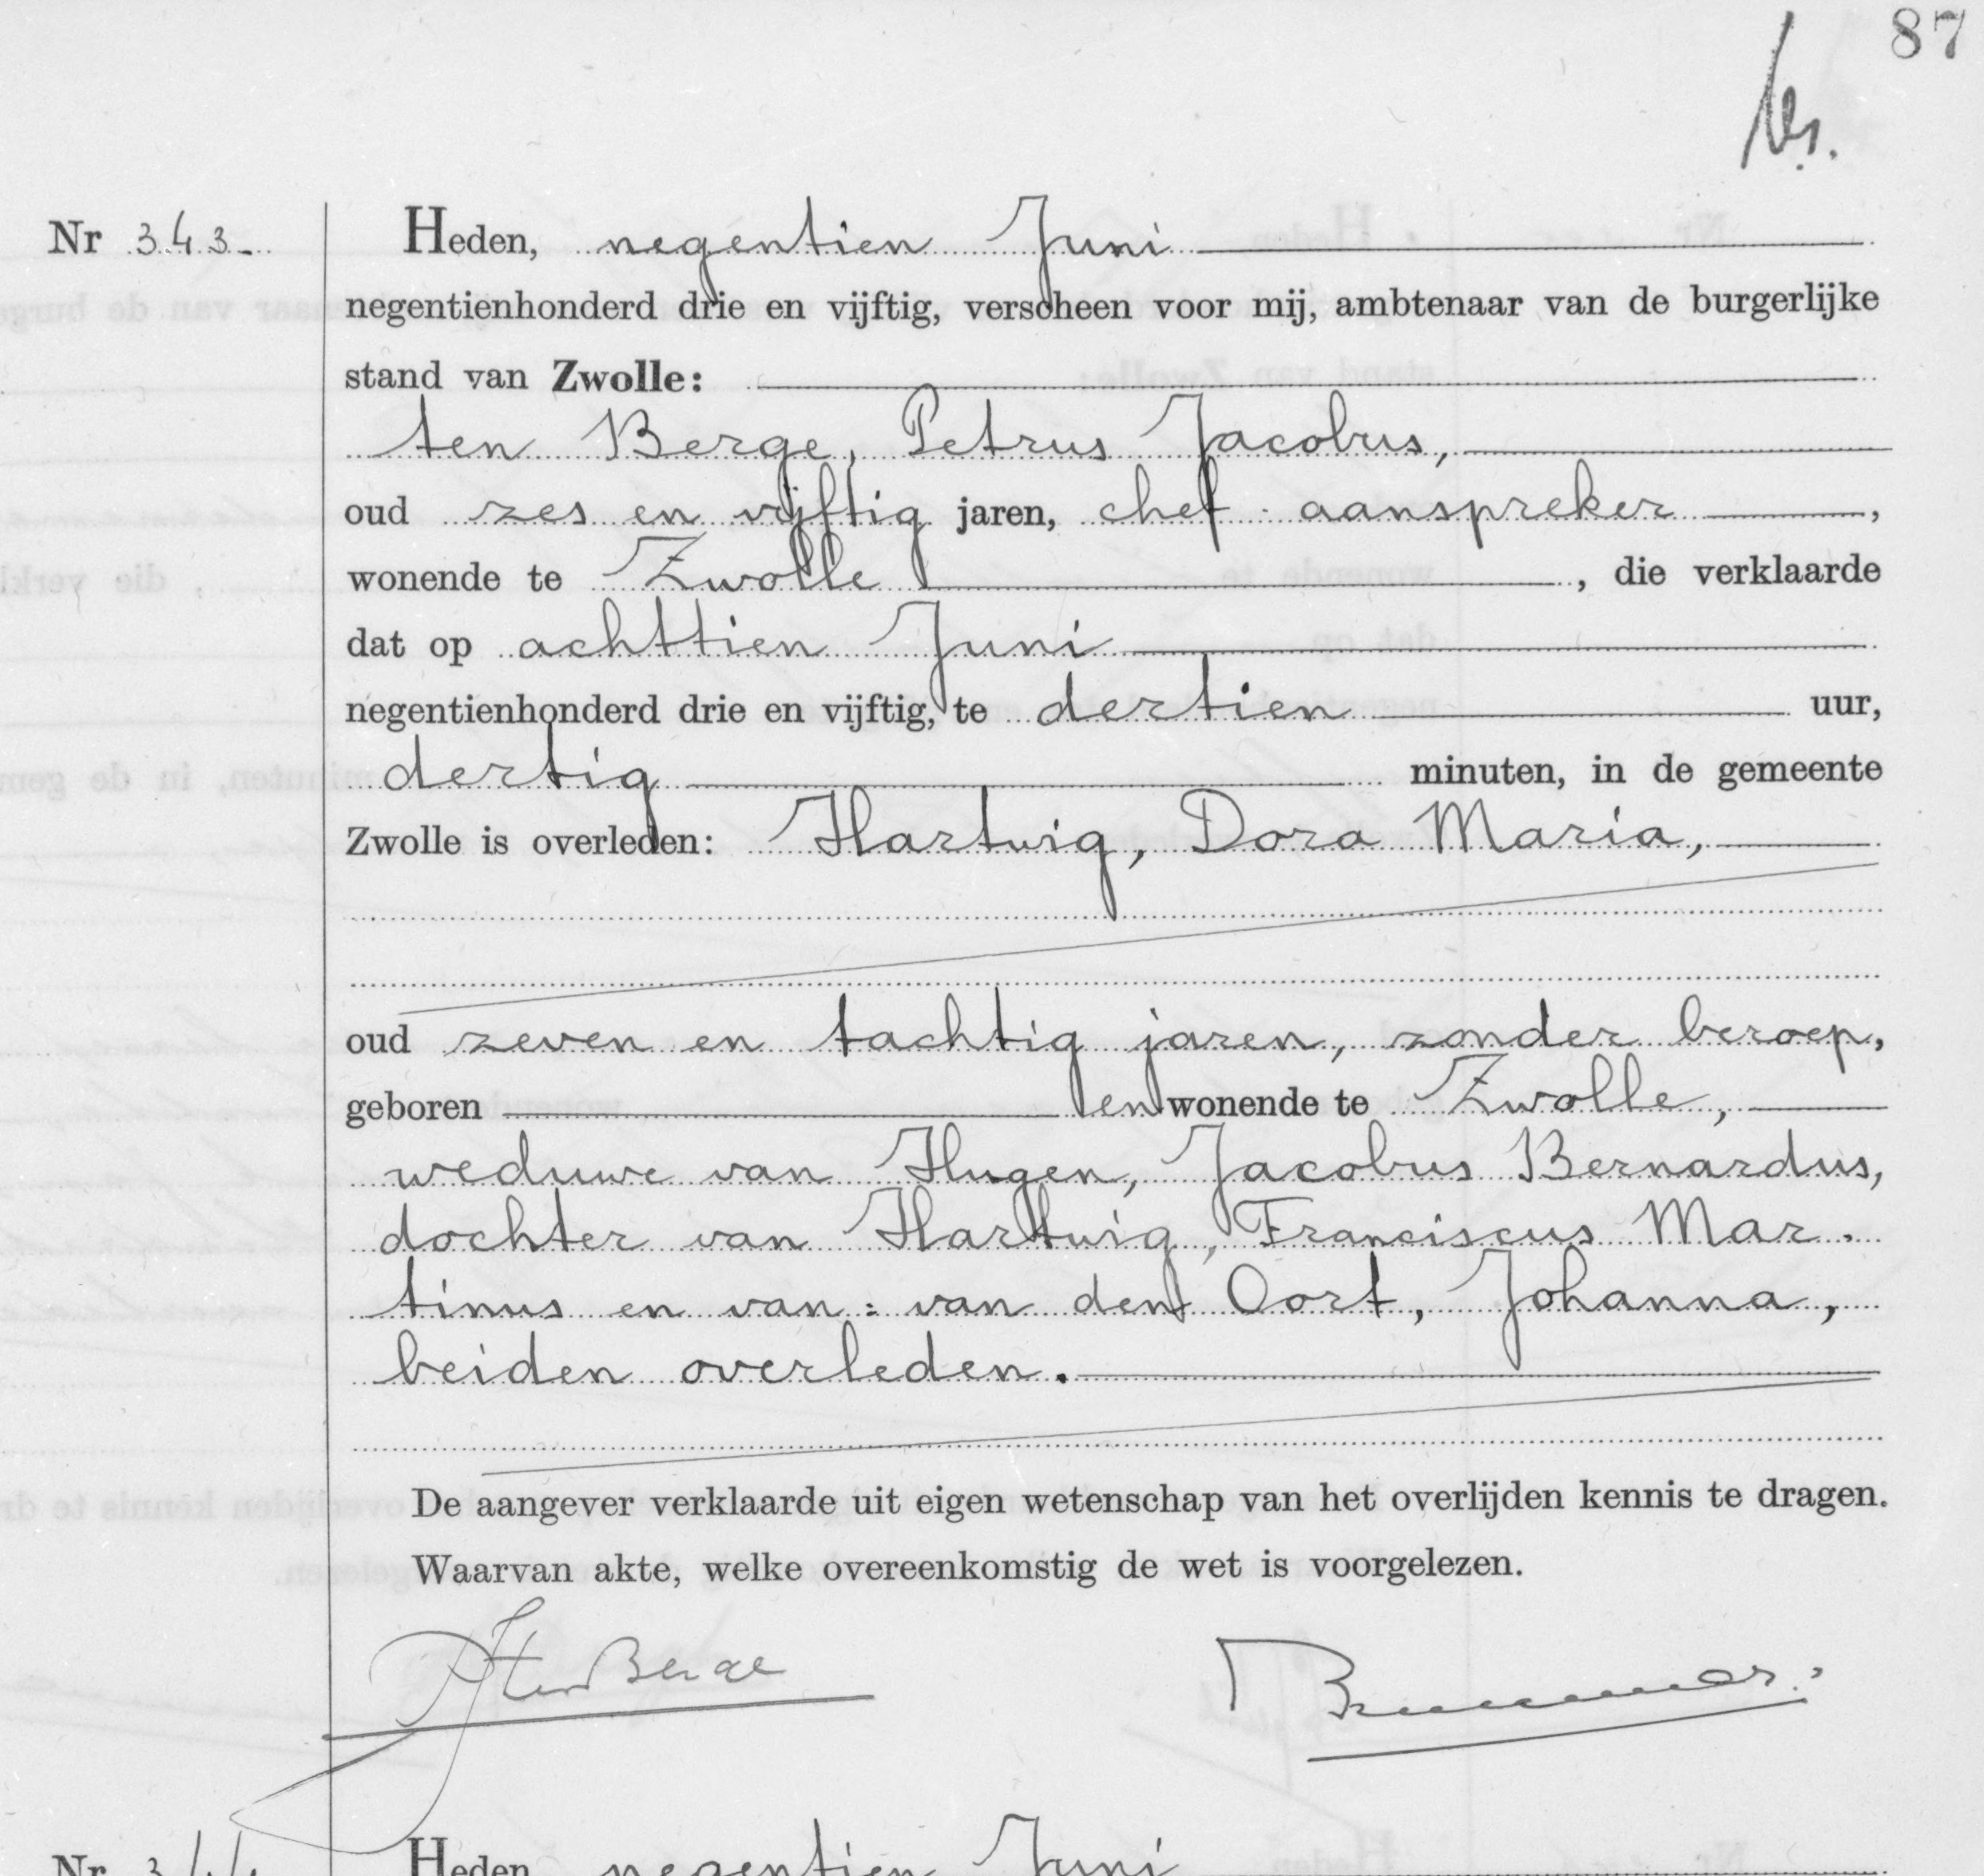 87
Nr 343
Heden, negentien Juni
negentienhonderd drie en vijftig, verscheen voor mij, ambtenaar van de burgerlijke
stand van Zwolle:
ten Berge, Petrus Jacobus,
oud zes en vijftig jaren, chef-aanspreker,
wonende te Zwolle, die verklaarde
dat op achttien Juni
negentienhonderd drie en vijftig, te dertien uur,
dertig minuten, in de gemeente
Zwolle is overleden: Hartwig, Dora Maria,
oud zeven en tachtig jaren, zonder beroep,
geboren en wonende te Zwolle,
weduwe van Hugen, Jacobus Bernardus,
dochter van Hartwig, Franciscus Mar-
tinus en van: van den Oort, Johanna,
beiden overleden.
De aangever verklaarde uit eigen wetenschap van het overlijden kennis te dragen.
Waarvan akte, welke overeenkomstig de wet is voorgelezen.
PJ ten Berge
Nr 344 Heden, negentien Juni